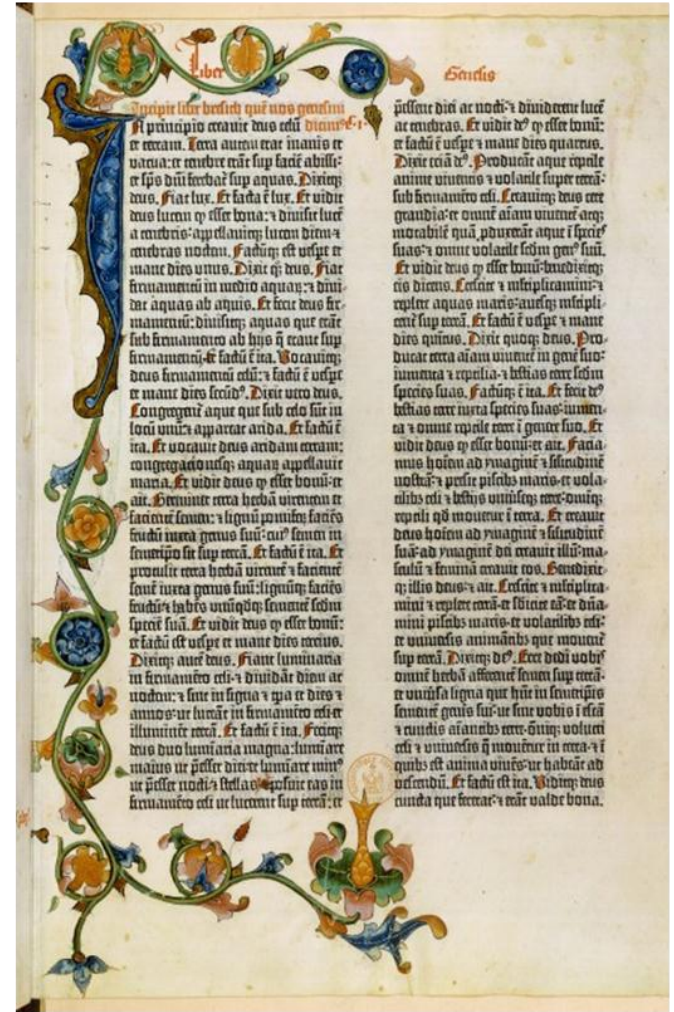 Liber Genesis
Incipit liber bresich quē nos genesim
dicim⁹
In principio creavit deus celū
et terram. Terra autem erat inanis et
vacua: et tenebre erāt sup faciē abissi:
et sp̄s dn̄i ferebat̄ sup aquas. Dixitq;
deus. Fiat lux. Et facta ē lux. Et vidit
deus lucem ꝙ esset bona: ⁊ divisit lucē
a tenebris: appellavitq; lucem diem ⁊
tenebras noctem. Factūq; est vesꝑe et
mane dies unus. Dixit q̄ deus. Fiat
firmamentū in medio aquaꝝ: ⁊ divi-
dat aquas ab aquis. Et fecit deus fir-
mamentū: divisitq; aquas que erāt
sub firmamento ab hijs q̄ erant sup
firmamentū: et factū ē ita. Vocavitq;
deus firmamentū celū: ⁊ factū ē vesꝑe
et mane dies secūd⁹. Dixit vero deus.
Congregent̄ aque que sub celo sūt in
locū unū ⁊ appareat arida. Et factū ē
ita. Et vocavit deus aridam terram:
congregacionesq; aquaꝝ appellavit
maria. Et vidit deus ꝙ esset bonū: et
ait. Germinet terra herbā virentem et
facientē semen: ⁊ lignū pomifeꝝ faciēs
fructū iuxta genus suū: cui⁹ semen in
semetipō sit sup terrā. Et factū ē ita. Et
protulit terra herbā virentē ⁊ facientē
semē iuxta genus suū: lignūq; faciēs
fructū ⁊ habēs unūqdq; sementē scdm
speciē suā. Et vidit deus ꝙ esset bonū:
et factū est vesꝑe et mane dies tercius.
Dixitq; autē deus. Fiant luminaria
in firmamēto celi ⁊ dividāt diem ac
noctem: ⁊ sint in signa ⁊ tꝑa et dies ⁊
annos: ut luceāt in firmamēto celi et
illuminēt terrā. Et factū ē ita. Fecitq;
deus duo luminaria magna: lumīare
maius ut pēsset diei et lumīare min⁹
ut pēsset nocti ⁊ stellas: ⁊ posuit eas in
firmamēto celi ut lucerent sup terrā: et
pēssent diei ac nocti: ⁊ dividerent lucē
ac tenebras. Et vidit de⁹ ꝙ esset bonū:
et factū ē vesꝑe ⁊ mane dies quartus.
Dixit eciā de⁹. Producāt aque reptile
anime viventis ⁊ volatile super terrā:
sub firmamēto celi. Creavitq; deus cete
grandia: et omnē aīam viventē atq;
motabilē quā ꝓduxerāt aque ī species
suas: ⁊ omne volatile scdm gen⁹ suū.
Et vidit deus ꝙ esset bonū: benedixitq;
eis dicens. Crescite ⁊ mltiplicamini: ⁊
replete aquas maris: avesq; mltipli-
cent̄ sup terrā. Et factū ē vesꝑe ⁊ mane
dies quītus. Dixit quoq; deus. Pro-
ducat terra aīam viventē in genē suo:
iumenta ⁊ reptilia: ⁊ bestias terre scdm
species suas. Factūq; ē ita. Et fecit de⁹
bestias terre iuxta species suas: iumen-
ta ⁊ omne reptile terre ī genere suo. Et
vidit deus ꝙ esset bonū: et ait. Facia-
mus hoīem ad ymaginē ⁊ silitudinē
nostrā: ⁊ presit piscib; maris: et vola-
tilib; celi ⁊ bestijs universeq; terre: omīq;
reptili qd movetur ī terra. Et creavit
deus hoīem ad ymaginē ⁊ silitudinē
suā: ad ymaginē dei creavit illū: ma-
sculū ⁊ feminā creavit eos. Benedixit-
q; illis deus: ⁊ ait. Crescite ⁊ mltiplica-
mini ⁊ replete terrā: et sbicite eā: et dn̄a-
mini piscib; maris: et volatilib; celi:
et universis animātib; que moventur
sup terrā. Dixitq; de⁹. Ecce dedi vobis
omnē herbā afferentē semen sup terrā:
et universa ligna que hn̄t in semetipīs
sementē genis sui: ut sint vobis ī escā
⁊ cunctis aīantib; terre: omīq; volucri
celi ⁊ universis q̄ moventur in terra: ⁊ ī
quib; est anima vivēs: ut habeāt ad
vescendū. Et factū est ita. Viditq; deus
cuncta que fecerat: ⁊ erāt valde bona.